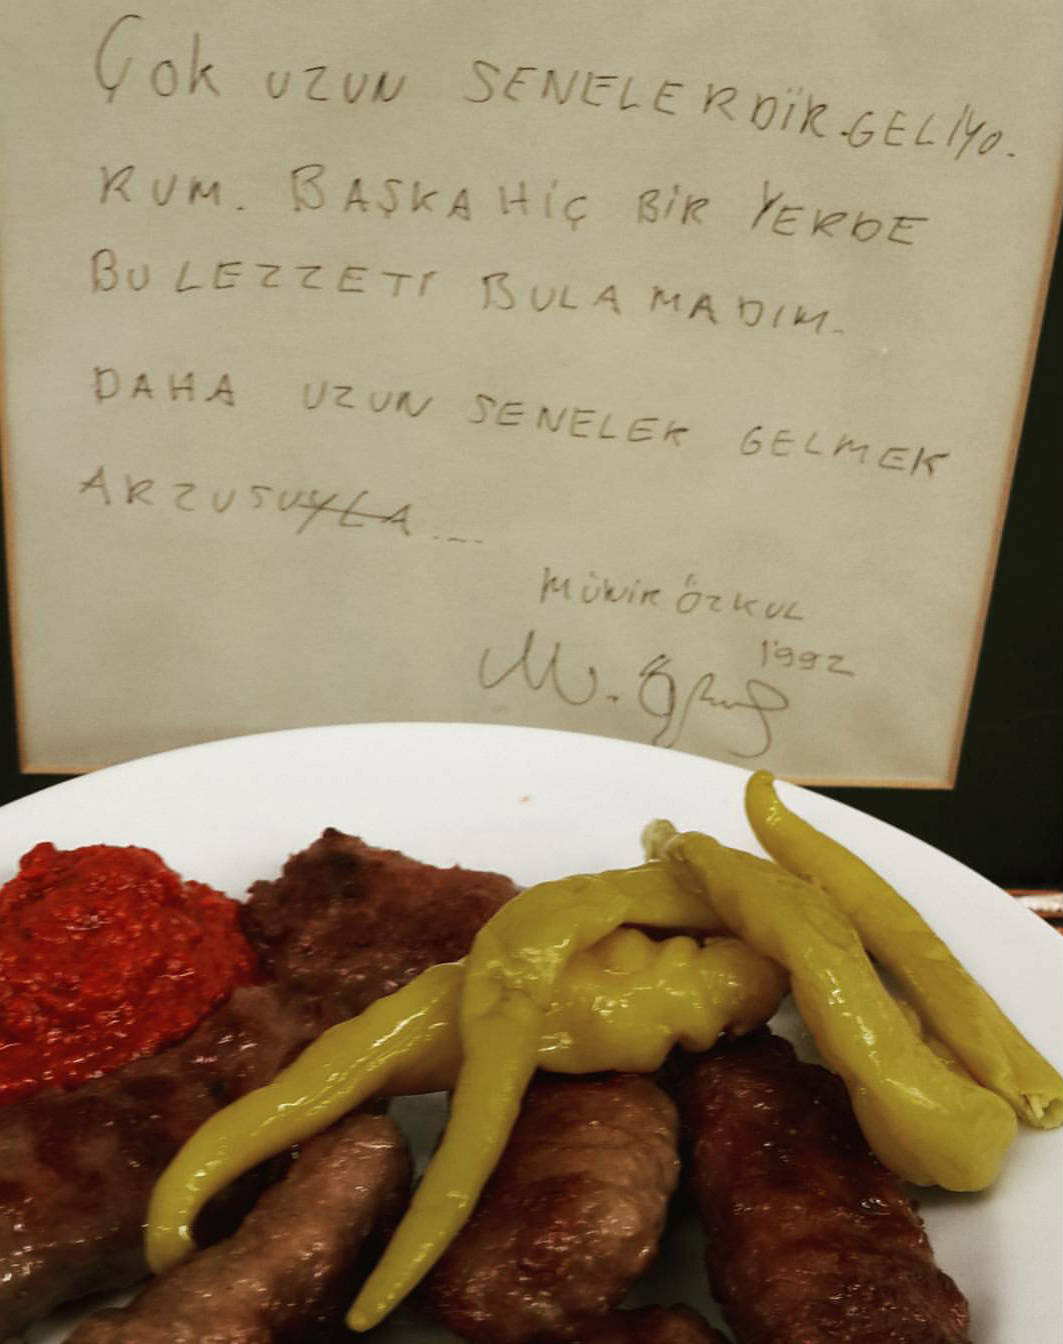 Çok UZUN SENELERDİR.GELİYO.
RUM. BAŞKA HİÇ BİR YERDE
BU LEZZETİ BULAMADIM.
DAHA UZUN SENELER GELMEK
ARZUSUYLA....
MÜNİR ÖZKUL
1992
M. Özkul